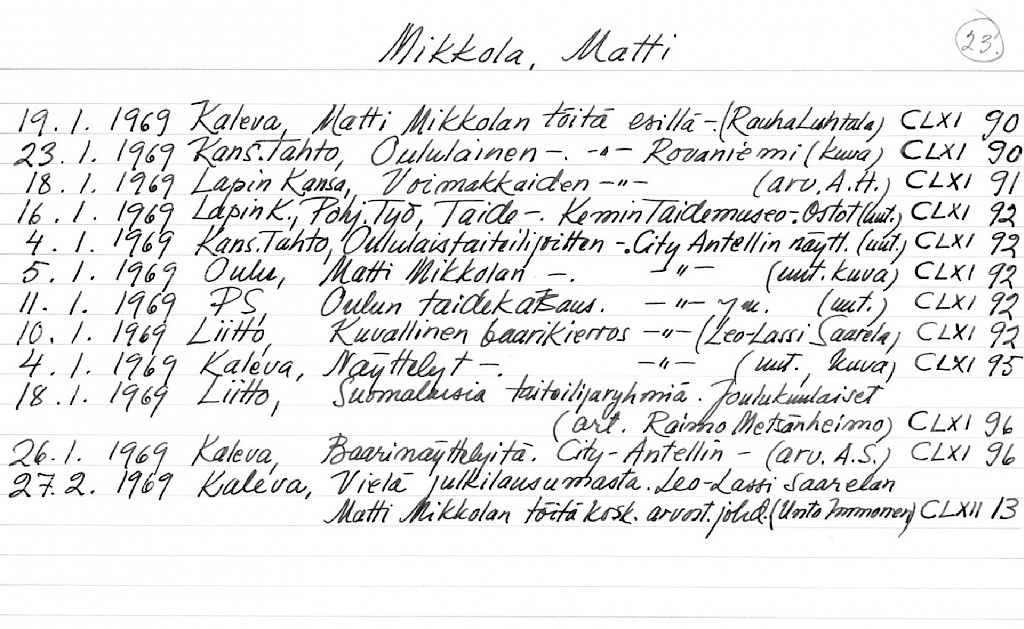 23.
Mikkola, Matti
19.1.1969 Kaleva, Matti Mikkolan töitä esillä -. (Rauha Luhtala) CLXI 90
23.1.1969 Kans.Tahto, Oululainen -. -"- Rovaniemi (kuva) CLXI 90
18.1.1969 Lapin Kansa, Voimakkaiden -"- (arv. A.H.) CLXI 91
16.1.1969 Lapin K., Pohj.Työ, Taide -. Kemin Taidemuseo -. Ostot (uut.) CLXI 92
4.1.1969 Kans.Tahto, Oululaistaiteilijoitten -. City Antellin näytt. (uut.) CLXI 92
5.1.1969 Oulu, Matti Mikkolan -. -"- (uut. kuva) CLXI 92
11.1.1969 PS, Oulun taidekatsaus. -"- ym. (uut.) CLXI 92
10.1.1969 Liitto, Kuvallinen baarikierros -"- (Leo-Lassi Saarela) CLXI 92
4.1.1969 Kaleva, Näyttelyt -. -"- (uut., kuva) CLXI 95
18.1.1969 Liitto, Suomalaisia taiteilijaryhmiä. Joulukuulaiset
(art. Raimo Metsänheimo) CLXI 96
26.1.1969 Kaleva, Baarinäyttelyitä. City-Antellin - (arv. A.S.) CLXI 96
27.2.1969 Kaleva, Vielä julkilausumasta. Leo-Lassi Saarelan
Matti Mikkolan töitä kosk. arvost. johd. (Unto Immonen) CLXII 13